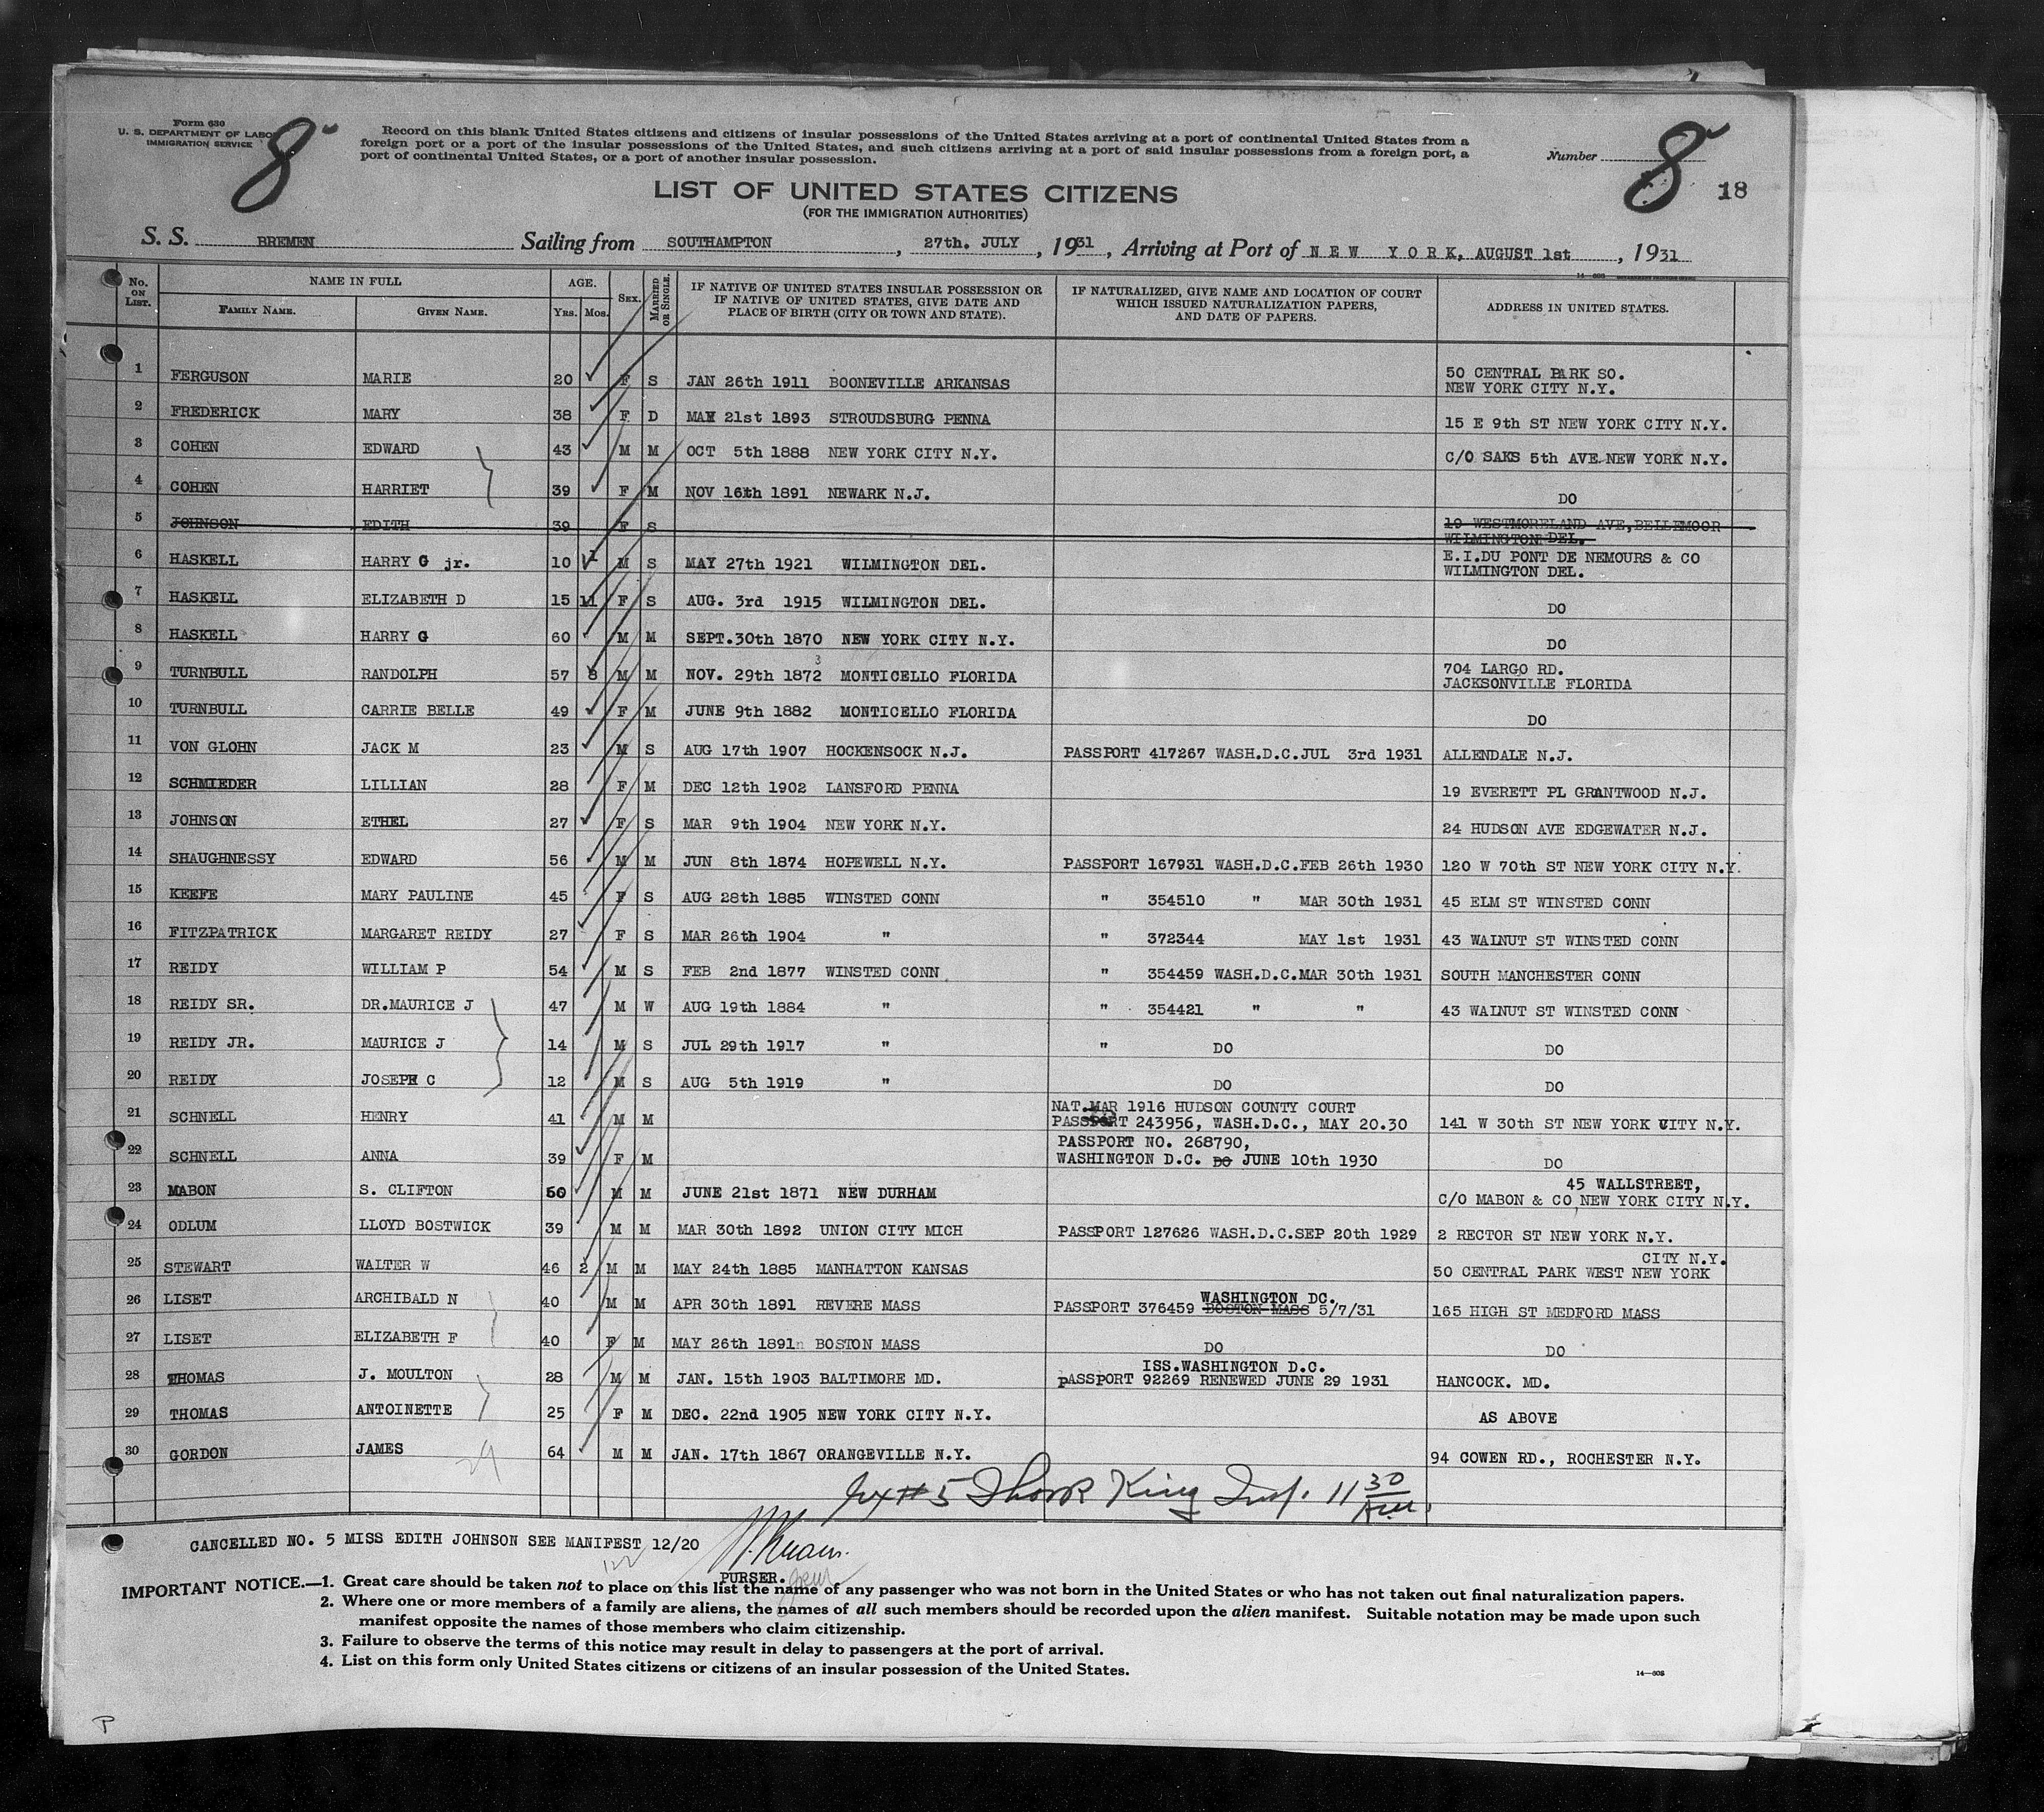 Form 630
U. S. DEPARTMENT OF LABOR
IMMIGRATION SERVICE
8
Record on this blank United States citizens and citizens of insular possessions of the United States arriving at a port of continental United States from a
foreign port or a port of the insular possessions of the United States, and such citizens arriving at a port of said insular possessions from a foreign port, a
port of continental United States, or a port of another insular possession.
Number 8 18
LIST OF UNITED STATES CITIZENS
(FOR THE IMMIGRATION AUTHORITIES)
S. S. BREMEN Sailing from SOUTHAMPTON, 27th. JULY, 1931, Arriving at Port of NEW YORK, AUGUST 1st, 1931
No. ON LIST. NAME IN FULL FAMILY NAME. GIVEN NAME. AGE. Yrs. Mos. SEX. MARRIED OR SINGLE. IF NATIVE OF UNITED STATES INSULAR POSSESSION OR IF NATIVE OF UNITED STATES, GIVE DATE AND PLACE OF BIRTH (CITY OR TOWN AND STATE). IF NATURALIZED, GIVE NAME AND LOCATION OF COURT WHICH ISSUED NATURALIZATION PAPERS, AND DATE OF PAPERS. ADDRESS IN UNITED STATES.
1 FERGUSON MARIE 20 F S JAN 26th 1911 BOONEVILLE ARKANSAS 50 CENTRAL PARK SO. NEW YORK CITY N.Y.
2 FREDERICK MARY 38 F D MAY 21st 1893 STROUDSBURG PENNA 15 E 9th ST NEW YORK CITY N.Y.
3 COHEN EDWARD 43 M M OCT 5th 1888 NEW YORK CITY N.Y. C/O SAKS 5th AVE NEW YORK N.Y.
4 COHEN HARRIET 39 F M NOV 16th 1891 NEWARK N.J. DO
5 JOHNSON EDITH 39 F S 19 WESTMORELAND AVE,BELLEMOOR WILMINGTON DEL.
6 HASKELL HARRY G jr. 10 1 M S MAY 27th 1921 WILMINGTON DEL. E.I.DU PONT DE NEMOURS & CO WILMINGTON DEL.
7 HASKELL ELIZABETH D 15 11 F S AUG. 3rd 1915 WILMINGTON DEL. DO
8 HASKELL HARRY G 60 M M SEPT.30th 1870 NEW YORK CITY N.Y. DO
9 TURNBULL RANDOLPH 57 8 M M NOV. 29th 1872 3 MONTICELLO FLORIDA 704 LARGO RD. JACKSONVILLE FLORIDA
10 TURNBULL CARRIE BELLE 49 F M JUNE 9th 1882 MONTICELLO FLORIDA DO
11 VON GLOHN JACK M 23 M S AUG 17th 1907 HOCKENSOCK N.J. PASSPORT 417267 WASH.D.C.JUL 3rd 1931 ALLENDALE N.J.
12 SCHMIEDER LILLIAN 28 F M DEC 12th 1902 LANSFORD PENNA 19 EVERETT PL GRANTWOOD N.J.
13 JOHNSON ETHEL 27 F S MAR 9th 1904 NEW YORK N.Y. 24 HUDSON AVE EDGEWATER N.J.
14 SHAUGHNESSY EDWARD 56 M M JUN 8th 1874 HOPEWELL N.Y. PASSPORT 167931 WASH.D.C.FEB 26th 1930 120 W 70th ST NEW YORK CITY N.Y.
15 KEEFE MARY PAULINE 45 F S AUG 28th 1885 WINSTED CONN " 354510 " MAR 30th 1931 45 ELM ST WINSTED CONN
16 FITZPATRICK MARGARET REIDY 27 F S MAR 26th 1904 " " 372344 MAY 1st 1931 43 WALNUT ST WINSTED CONN
17 REIDY WILLIAM P 54 M S FEB 2nd 1877 WINSTED CONN " 354459 WASH.D.C.MAR 30th 1931 SOUTH MANCHESTER CONN
18 REIDY SR. DR.MAURICE J 47 M W AUG 19th 1884 " " 354421 " " 43 WALNUT ST WINSTED CONN
19 REIDY JR. MAURICE J 14 M S JUL 29th 1917 " " DO DO
20 REIDY JOSEPH C 12 M S AUG 5th 1919 " DO DO
21 SCHNELL HENRY 41 M M NAT.MAR 1916 HUDSON COUNTY COURT PASSPORT 243956, WASH.D.C., MAY 20.30 141 W 30th ST NEW YORK CITY N.Y.
22 SCHNELL ANNA 39 F M PASSPORT NO. 268790, WASHINGTON D.C. DO JUNE 10th 1930 DO
23 MABON S. CLIFTON 60 M M JUNE 21st 1871 NEW DURHAM 45 WALLSTREET, C/O MABON & CO,NEW YORK CITY N.Y.
24 ODLUM LLOYD BOSTWICK 39 M M MAR 30th 1892 UNION CITY MICH PASSPORT 127626 WASH.D.C.SEP 20th 1929 2 RECTOR ST NEW YORK N.Y.
25 STEWART WALTER W 46 2 M M MAY 24th 1885 MANHATTON KANSAS CITY N.Y. 50 CENTRAL PARK WEST NEW YORK
26 LISET ARCHIBALD N 40 M M APR 30th 1891 REVERE MASS WASHINGTON DC. PASSPORT 376459 BOSTON MASS 5/7/31 165 HIGH ST MEDFORD MASS
27 LISET ELIZABETH F 40 F M MAY 26th 1891 BOSTON MASS DO DO
28 THOMAS J. MOULTON 28 M M JAN. 15th 1903 BALTIMORE MD. ISS.WASHINGTON D.C. PASSPORT 92269 RENEWED JUNE 29 1931 HANCOCK. MD.
29 THOMAS ANTOINETTE 25 F M DEC. 22nd 1905 NEW YORK CITY N.Y. AS ABOVE
30 GORDON JAMES 64 M M JAN. 17th 1867 ORANGEVILLE N.Y. 94 COWEN RD., ROCHESTER N.Y.
29
#5 King Insp. 11 30 AM.
CANCELLED NO. 5 MISS EDITH JOHNSON SEE MANIFEST 12/20
PURSER.
IMPORTANT NOTICE.—1. Great care should be taken not to place on this list the name of any passenger who was not born in the United States or who has not taken out final naturalization papers.
2. Where one or more members of a family are aliens, the names of all such members should be recorded upon the alien manifest. Suitable notation may be made upon such
manifest opposite the names of those members who claim citizenship.
3. Failure to observe the terms of this notice may result in delay to passengers at the port of arrival.
4. List on this form only United States citizens or citizens of an insular possession of the United States.
P